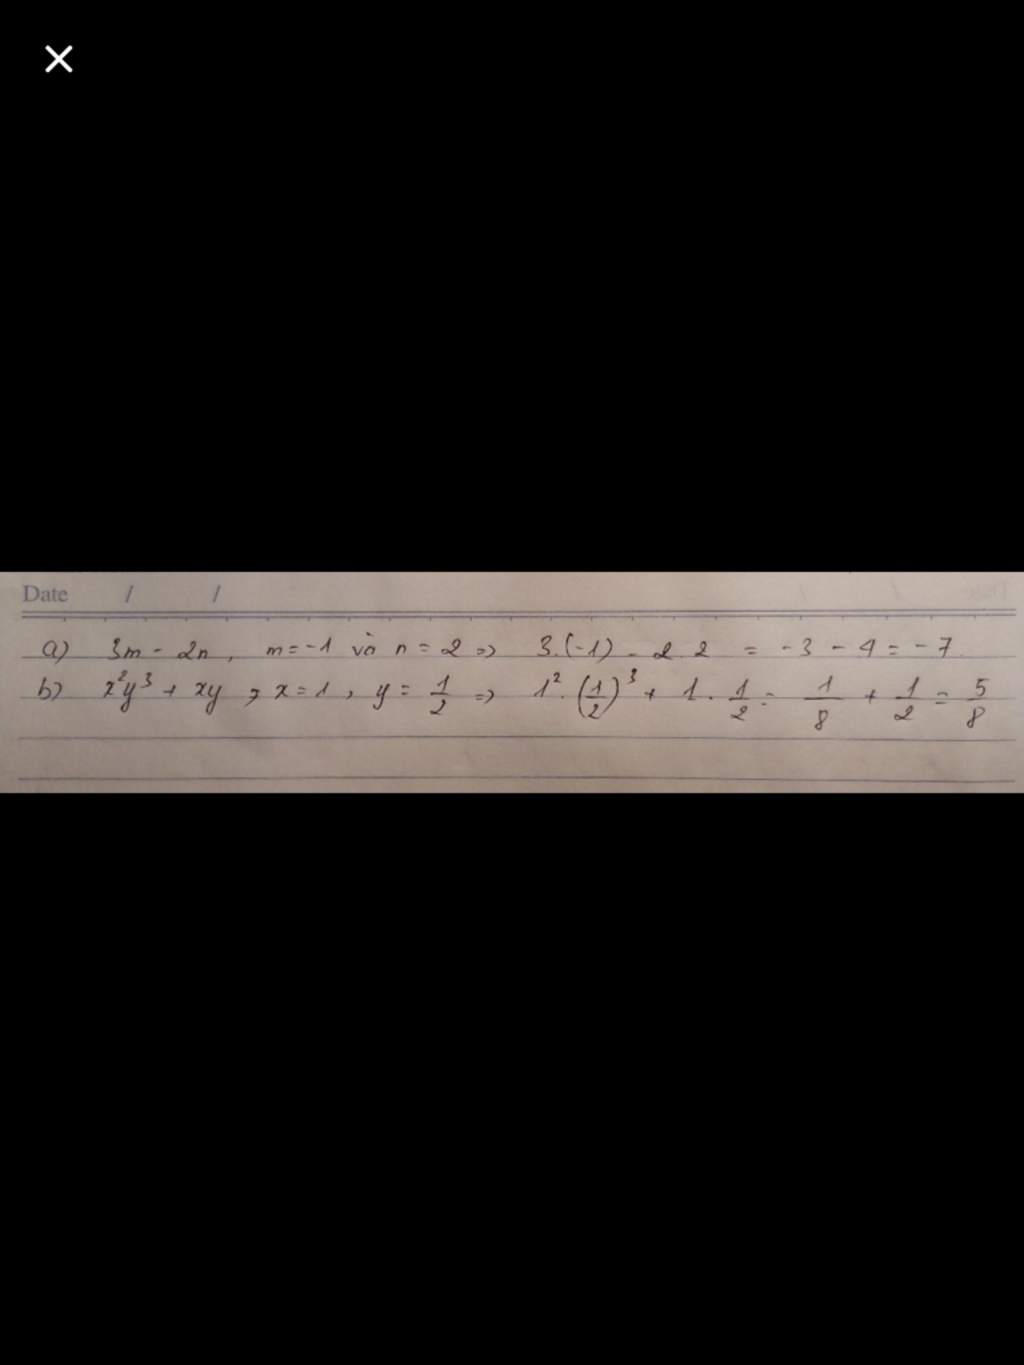 Date / /
a) 3m - 2n, m = -1 và n = 2 => 3.(-1) - 2 2 = -3 - 4 = -7.
b) x²y³ + xy ; x = 1, y = 1/2 => 1². (1/2)³ + 1 . 1/2 = 1/8 + 1/2 = 5/8